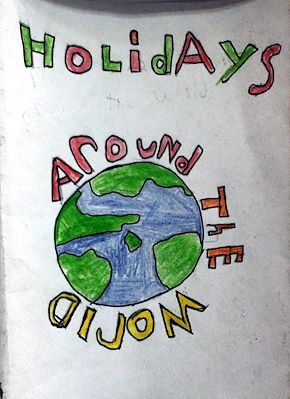 HOLidAyS
ArOUND
ThE
WOrlD